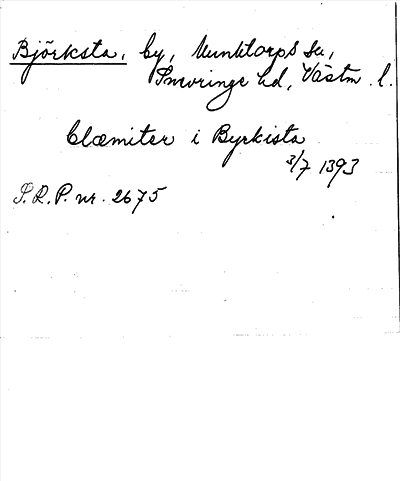 Björksta, by, Munktorps sn,
Snevringe hd, Västm. l.
Clæmiter i Byrkista
3/7 1393
S.R.P. nr. 2675